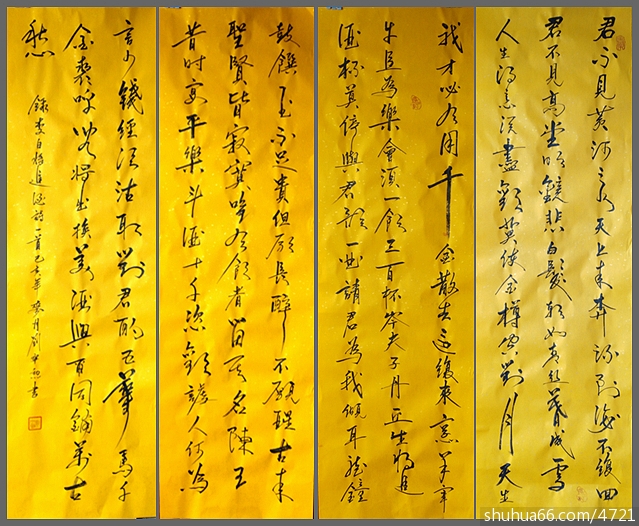 君不見黃河之水天上來奔流到海不復回
君不見高堂明鏡悲白髮朝如青絲暮成雪
人生得意須盡歡莫使金樽空對月天生
我才必有用千金散還復來烹羊宰
牛且為樂會須一飲三百杯岑夫子丹丘生將進
酒杯莫停與君歌一曲請君為我傾耳聽鐘
鼓饌玉不足貴但願長醉不願醒古來
聖賢皆寂寞唯有飲者留其名陳王
昔時宴平樂斗酒十千恣歡謔人何為
言少錢徑須沽取對君酌五華馬千
金裘呼兒將出換美酒與同銷萬古
愁
錄李白將進酒詩一首己亥年月劉書
shuhua66.com/4721